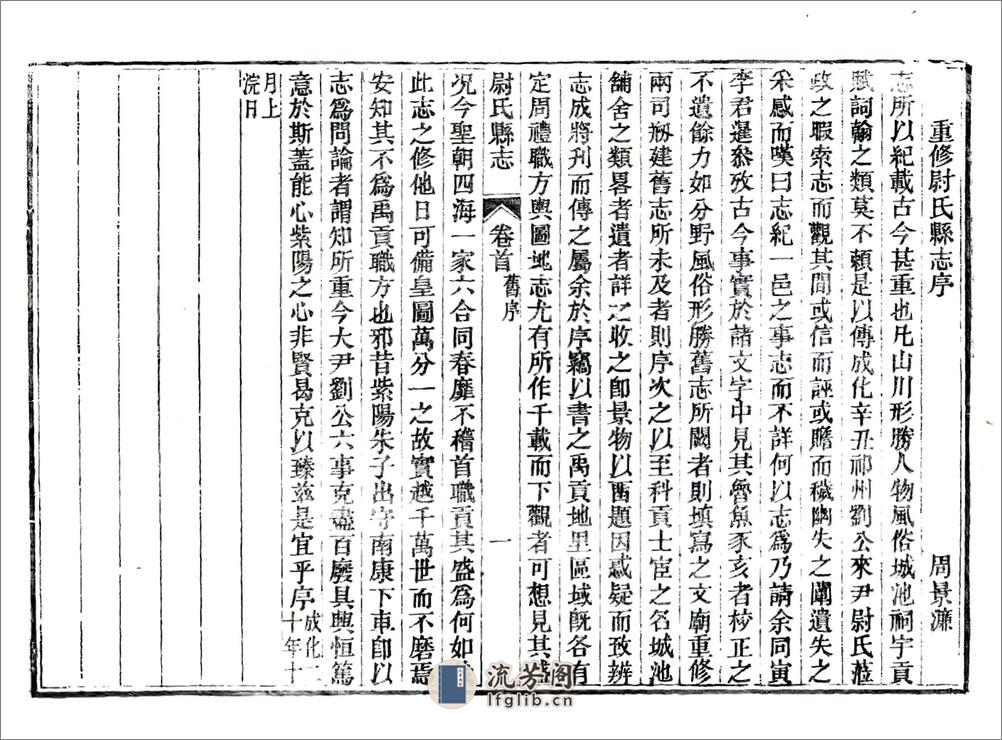 重修尉氏縣志序 周景濂
志所以紀載古今甚重也凡山川形勝人物風俗城池祠宇貢
賦詞翰之類莫不賴是以傳成化辛丑祁州劉公來尹尉氏蒞
政之暇索志而觀其間或信而誣或贍而穢幽失之闡遺失之
采感而嘆曰志紀一邑之事志而不詳何以志爲乃請余同寅
李君暹叅攷古今事實於諸文字中見其魯魚豕亥者校正之
不遺餘力如分野風俗形勝舊志所闕者則塡寫之文廟重修
兩司剏建舊志所未及者則序次之以至科貢士宦之名城池
舖舍之類畧者遺者詳之收之卽景物以舊題因惑疑而致辨
志成將刋而傳之屬余於序竊以書之禹貢地里區域旣各有
定周禮職方輿圖地志尤有所作千載而下觀者可想見其盛
尉氏縣志 卷首 舊序 一
况今聖朝四海一家六合同春靡不稽首職貢其盛爲何如
此志之修他日可備皇圖萬分一之故實越千萬世而不磨焉
安知其不爲禹貢職方也邪昔紫陽朱子出守南康下車卽以
志爲問論者謂知所重今大尹劉公六事克盡百廢具興恒篤
意於斯蓋能心紫陽之心非賢曷克以臻兹是宜乎序 成化二十年十
月上浣日
流芳阁
lfglib.cn